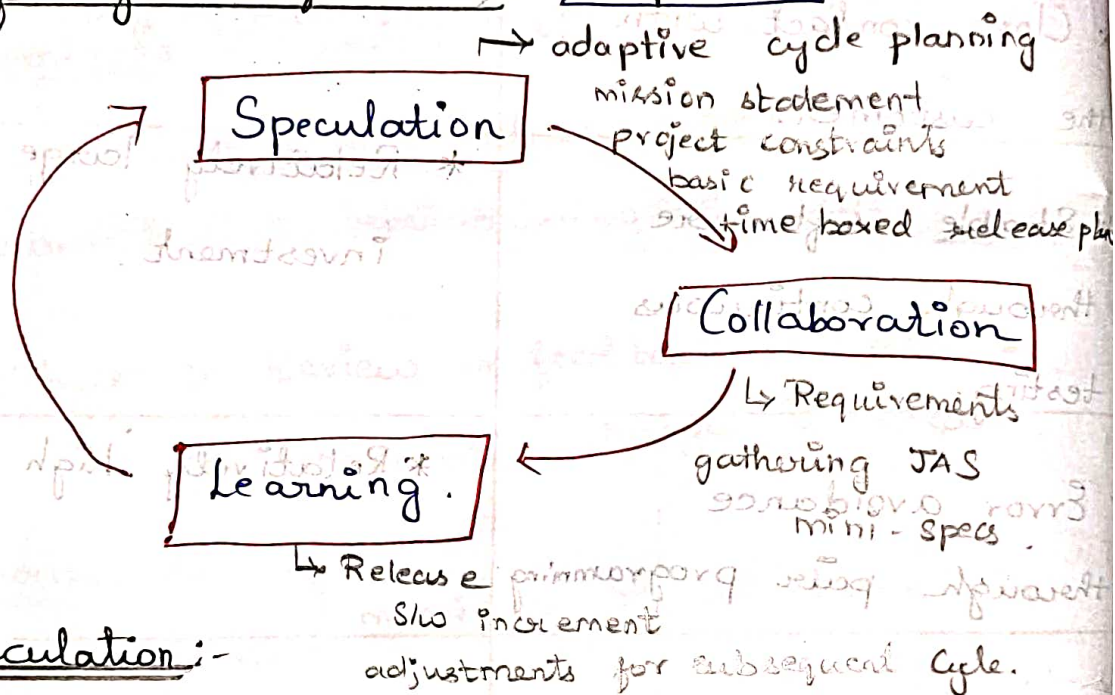 → adaptive cycle planning
Speculation
mission statement
project constraints
basic requirement
time boxed release plan
Collaboration
↳ Requirements
gathering JAS
mini - specs .
Learning .
↳ Release
S/w increment
adjustments for subsequent Cycle.
culation :-